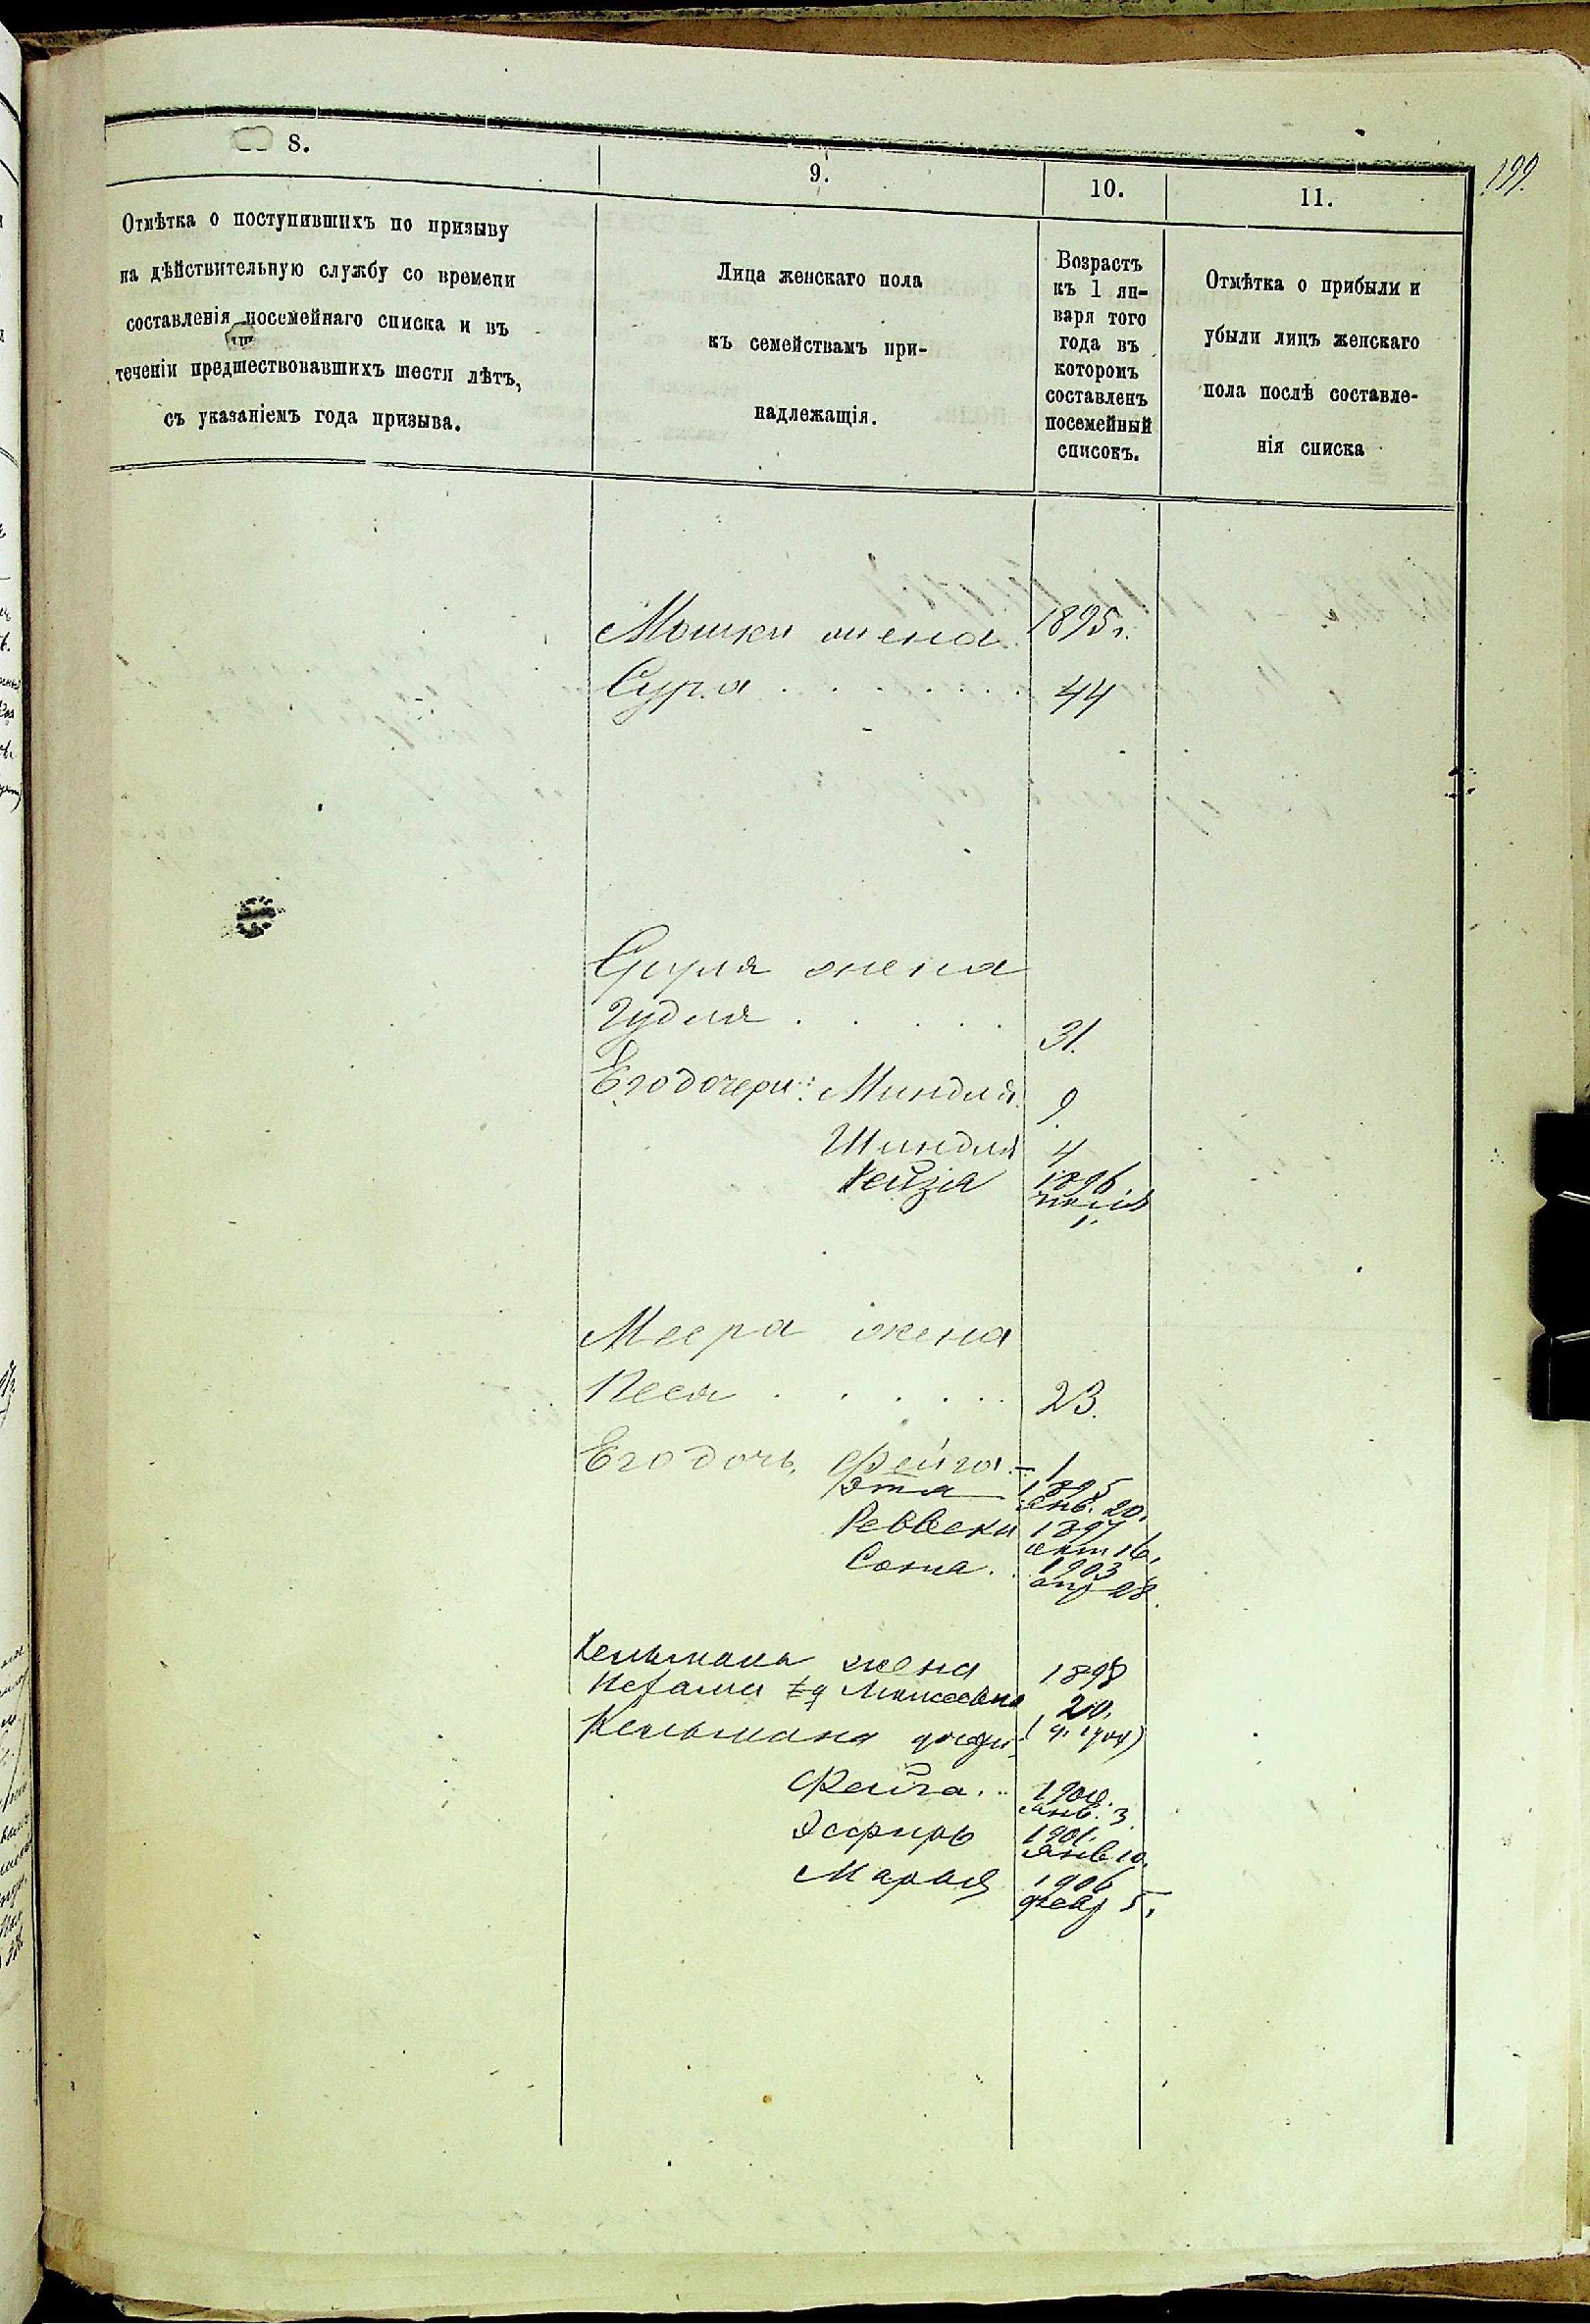 199.
8.
9.
10.
11.
Отмѣтка о поступившихъ по призыву
на дѣйствительную службу со времени
составленія посемейнаго списка и въ
теченіи предшествовавшихъ шести лѣтъ,
съ указаніемъ года призыва.
Лица женскаго пола
къ семействамъ при-
надлежащія.
Возрастъ
къ 1 ян-
варя того
года въ
которомъ
составленъ
посемейный
списокъ.
Отмѣтка о прибыли и
убыли лицъ женскаго
пола послѣ составле-
нія списка
Мошки жена 1895 г.
Сура . . . . . . 44
Сруля жена
Гудля . . . . . 31.
Его дочери: Миндля 9.
Шиндля 4
Рейзя 1896
1.
Меера жена
Песя . . . . . 23.
Его дочь Фейга – 1
Этя 1895
Янв. 20.
Реввека 1897
окт 16.
Сохна . 1903
апр 28.
Кельмана жена 1898
Мошковна 20.
Кельмана дочери:
Фейга . . 1900.
Янв. 3.
Эсфирь 1901.
Янв 10.
Марья 1906
февр 5.